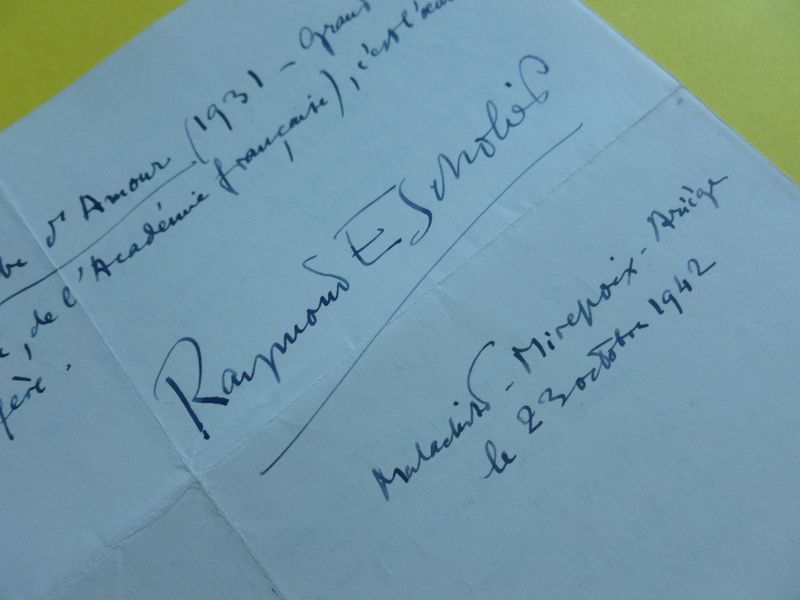 d'Amour (1931 - Grand
, de l'Académie française), c'est l'
Raymond Escholier
- Mirepoix - Ariège
le 23 octobre 1942